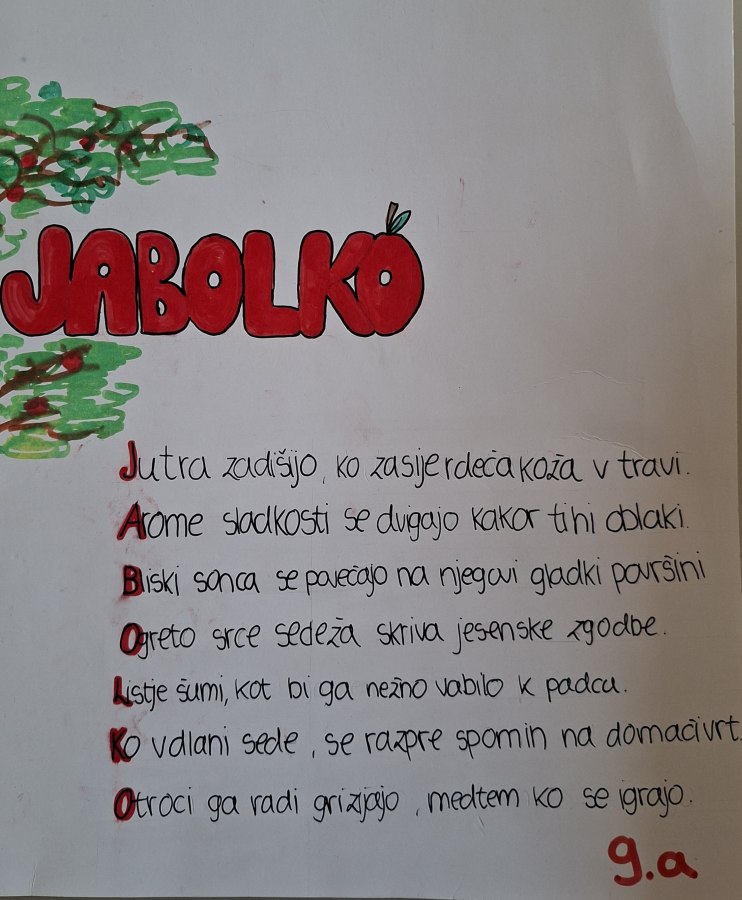 JABOLKO
Jutra zadišijo, ko zasije rdeča koža v travi.
Arome sladkosti se dvigajo kakor tihi oblaki.
Bliski sonca se povečajo na njegovi gladki površini
Ogreto srce sedeža skriva jesenske zgodbe.
Listje šumi, kot bi ga nežno vabilo k padcu.
Ko v dlani sede, se razpre spomin na domači vrt.
Otroci ga radi grizljajo, medtem ko se igrajo.
9.a